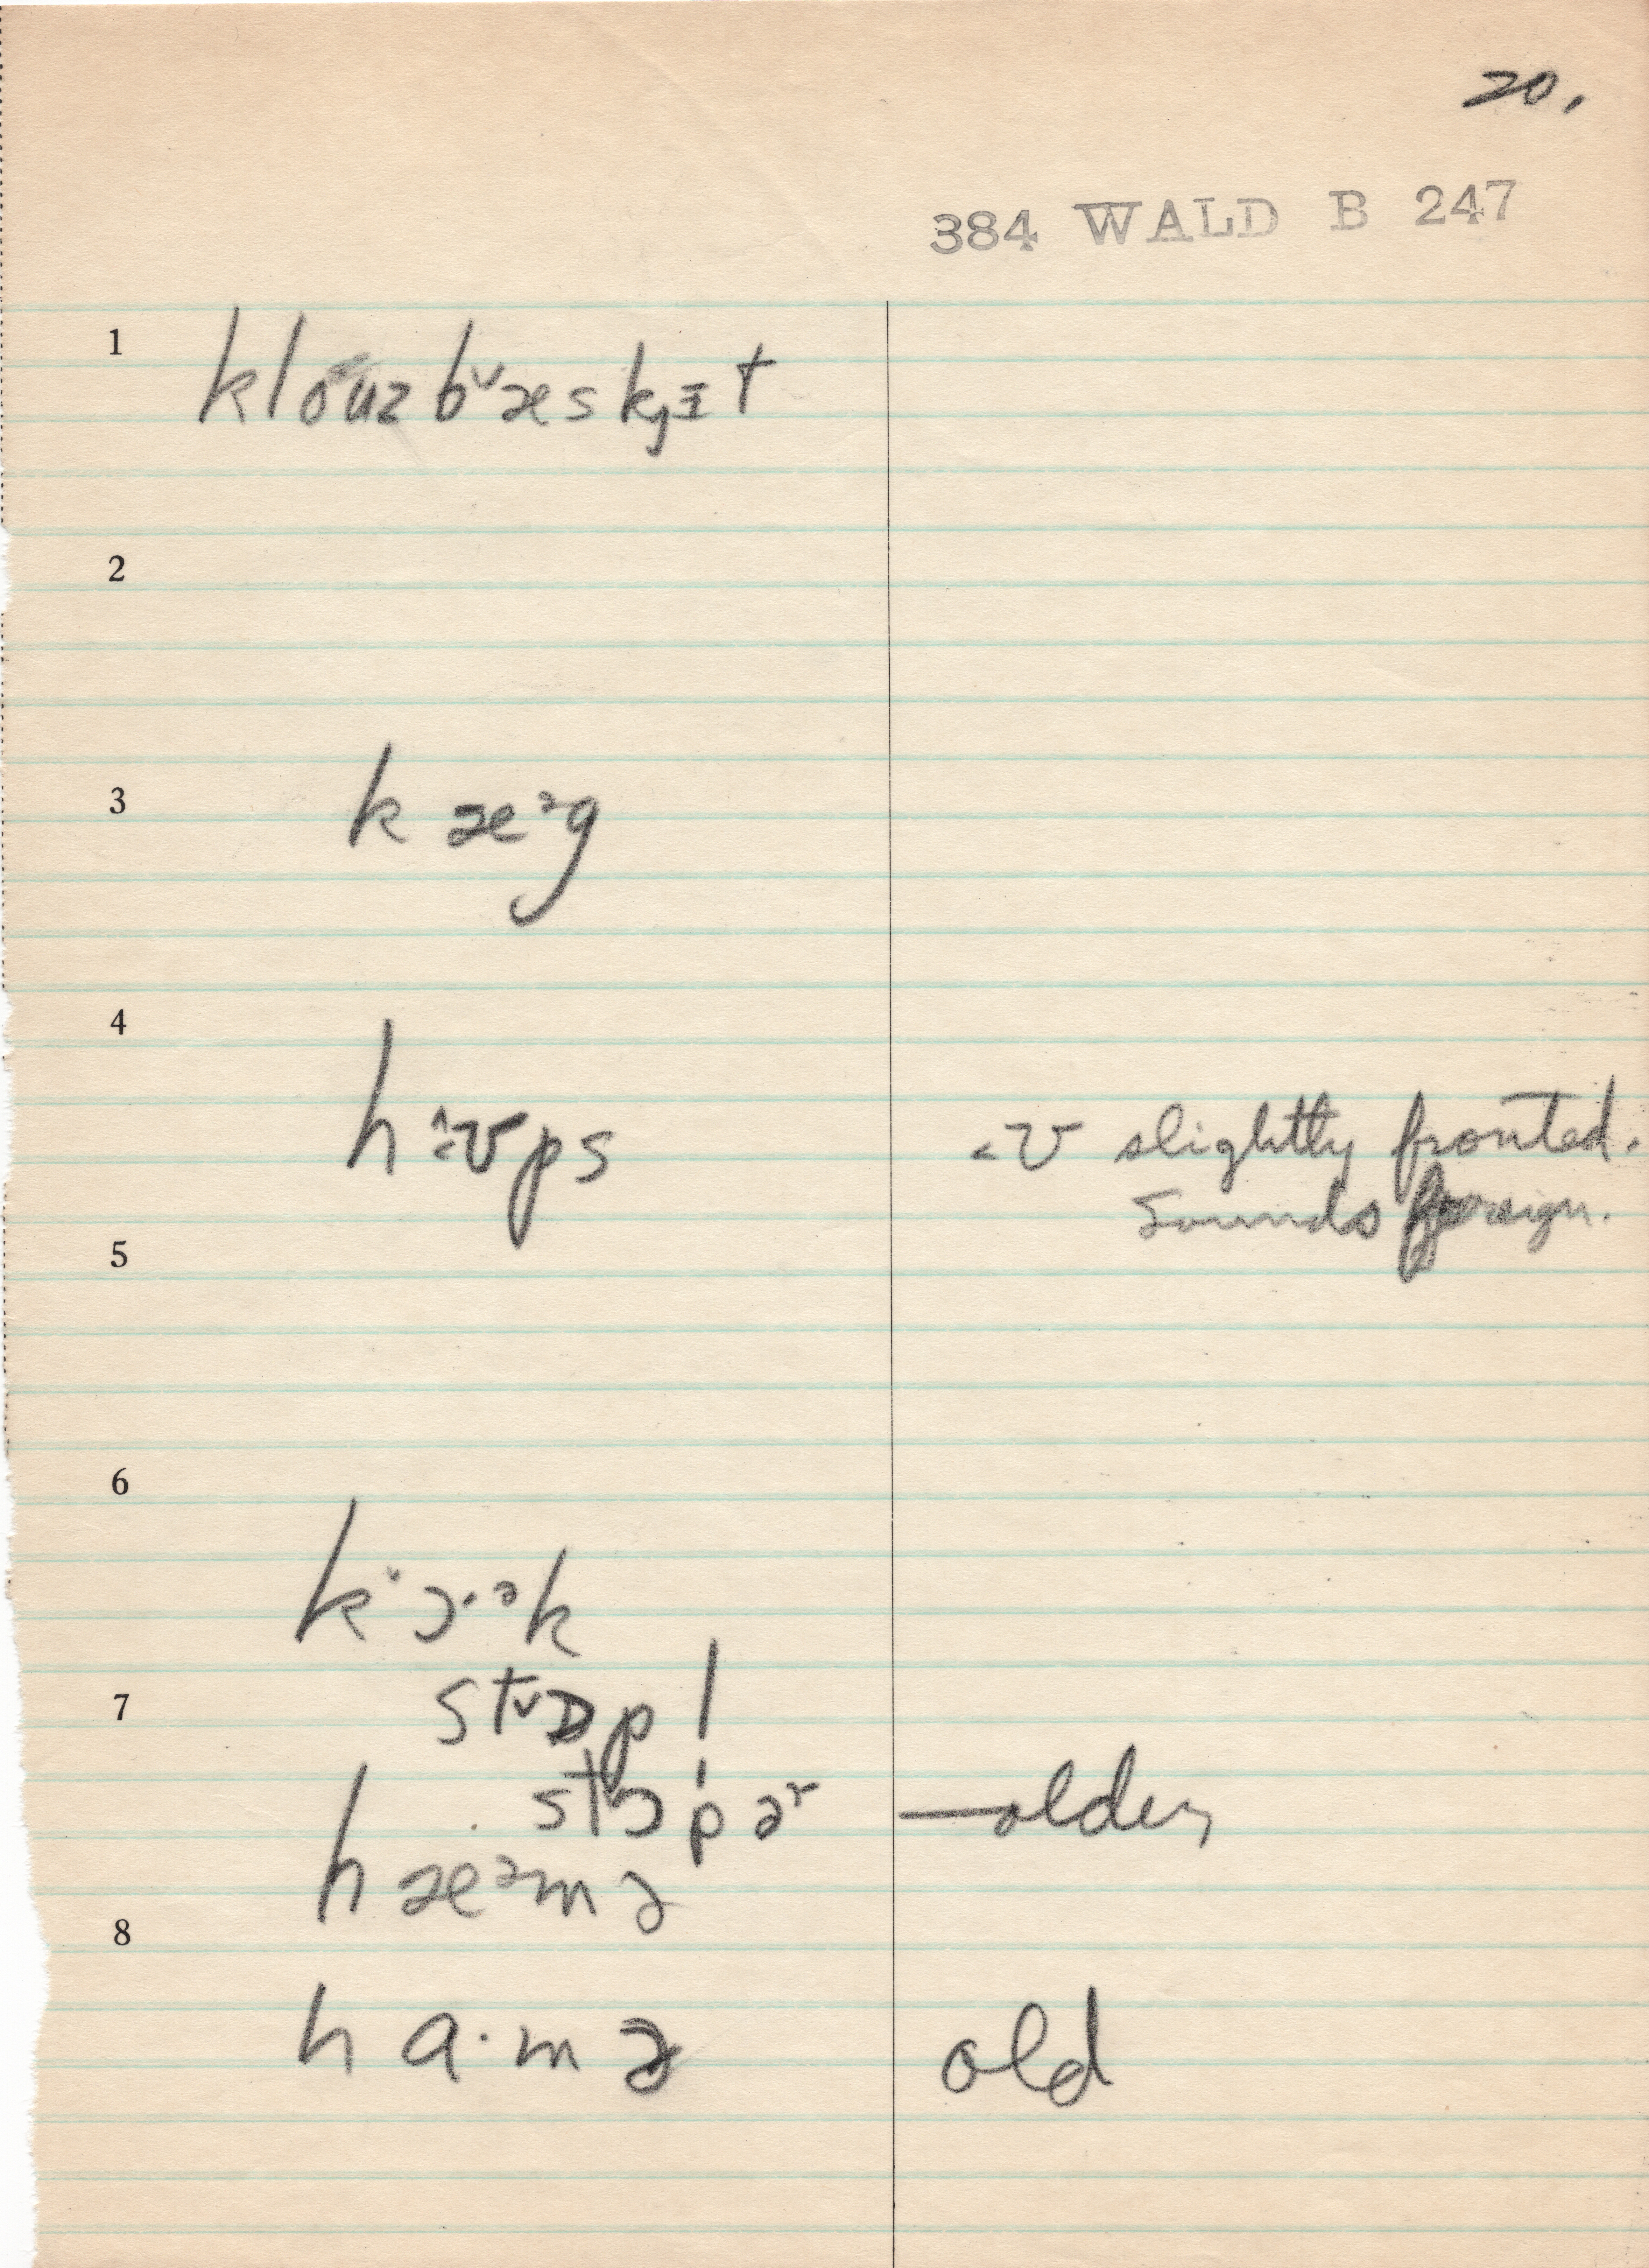 20.
384 WALD B 247
1
klo˅ʉz b˅æsk̡ᵻt
2
3
kæᵊg
4
h˄ʊps <ʊ slightly fronted.
Sounds foreign.
5
6
k˅ɔ·ᵊk
7
st˅ɒp|
stɔpɚ —older
hæᵊmə
8
ha·mə old